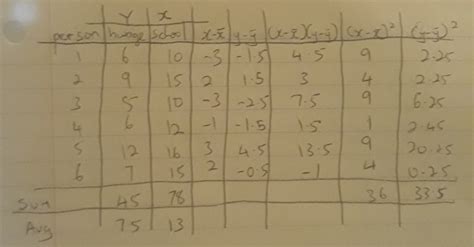 Y X
person hwage school x-x̄ y-ȳ (x-x̄)(y-ȳ) (x-x̄)² (y-ȳ)²
1 6 10 -3 -1.5 4.5 9 2.25
2 9 15 2 1.5 3 4 2.25
3 5 10 -3 -2.5 7.5 9 6.25
4 6 12 -1 -1.5 1.5 1 2.45
5 12 16 3 4.5 13.5 9 20.25
6 7 15 2 -0.5 -1 4 0.25
Sum 45 78 36 33.5
Avg 7.5 13